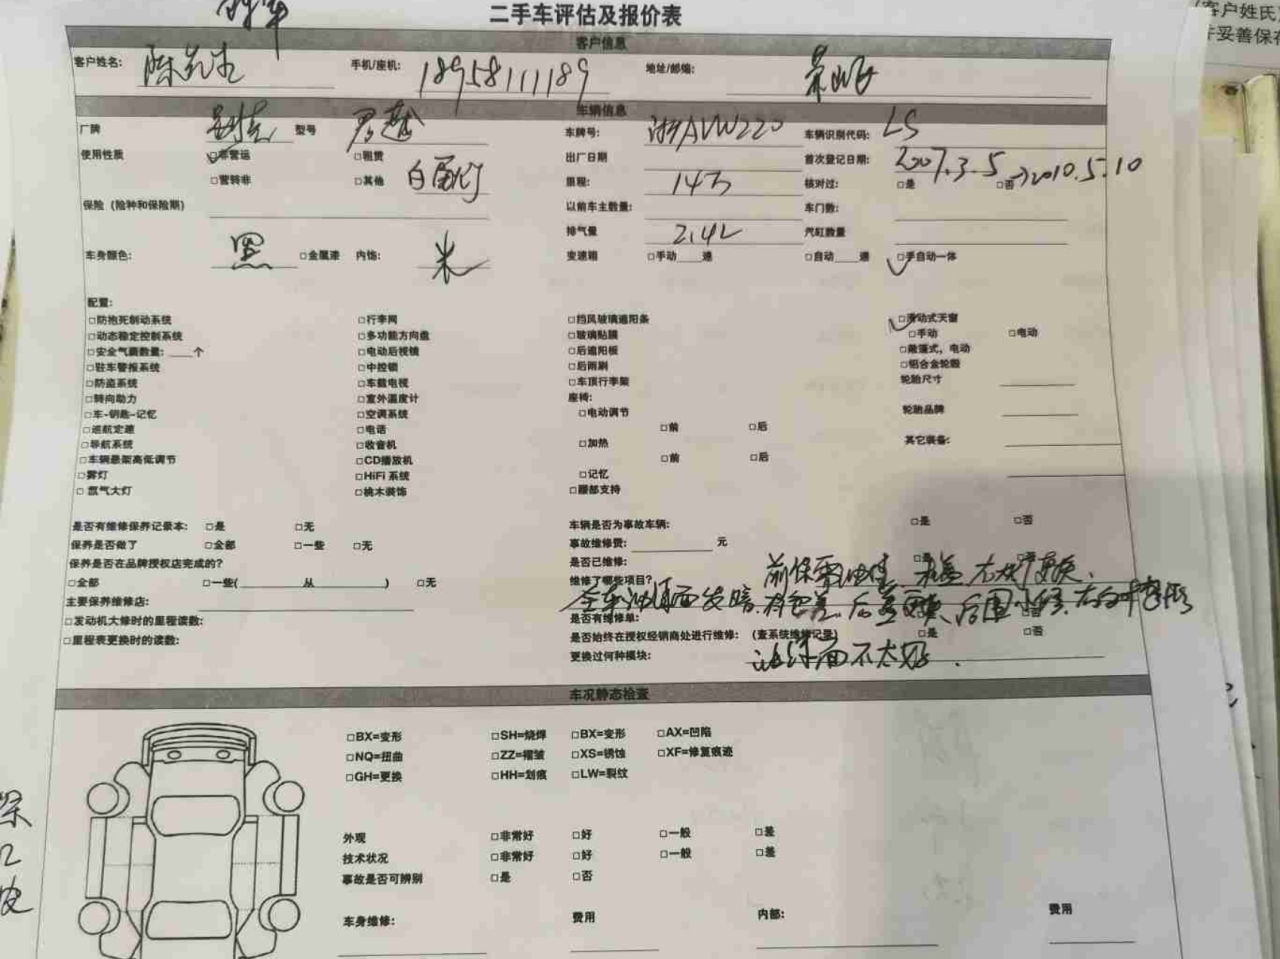 二手车评估及报价表
(客户姓氏
并妥善保存
客户信息
客户姓名: 陈先生 手机/座机: 18958111189 地址/邮编: 萧山
车辆信息
厂牌 别克 型号 君越 车牌号: 浙AVW220 车辆识别代码: LS
使用性质 □非营运 □租赁 出厂日期 首次登记日期: 2007.3.5 →2010.5.10
□营转非 □其他 白 里程: 14万 核对过: □是 □否
保险 (险种和保险期) 以前车主数量: 车门数:
排气量 2.4L 汽缸数量
车身颜色: 黑 □金属漆 内饰: 米 变速箱 □手动 速 □自动 速 □手自动一体
配置:
□防抱死制动系统 □行李网 □挡风玻璃遮阳条 □滑动式天窗
□动态稳定控制系统 □多功能方向盘 □玻璃贴膜 □手动 □电动
□安全气囊数量: 个 □电动后视镜 □后遮阳板 □敞篷式, 电动
□驻车警报系统 □中控锁 □后雨刷 □铝合金轮毂
□防盗系统 □车载电视 □车顶行李架 轮胎尺寸
□转向助力 □室外温度计 座椅:
□车-钥匙-记忆 □空调系统 □电动调节 轮胎品牌
□巡航定速 □电话 □前 □后
□导航系统 □收音机 □加热 其它装备:
□车辆悬架高低调节 □CD播放机 □前 □后
□雾灯 □HiFi 系统 □记忆
□氙气大灯 □桃木装饰 □腰部支持
是否有维修保养记录本: □是 □无 车辆是否为事故车辆: □是 □否
保养是否做了 □全部 □一些 □无 事故维修费: 元
保养是否在品牌授权店完成的? 是否已维修: □是 □否
□全部 □一些( 从 ) □无 维修了哪些项目? 前保 机盖 更换.
主要保养维修店: 全车油漆面发暗 后盖更换 后围
□发动机大修时的里程读数: 是否有维修单:
□里程表更换时的读数: 是否始终在授权经销商处进行维修: (查系统维修记录) □是 □否
更换过何种模块: 油漆面不太好.
车况静态检查
□BX=变形 □SH=烧焊 □BX=变形 □AX=凹陷
□NQ=扭曲 □ZZ=褶皱 □XS=锈蚀 □XF=修复痕迹
□GH=更换 □HH=划痕 □LW=裂纹
外观 □非常好 □好 □一般 □差
技术状况 □非常好 □好 □一般 □差
事故是否可辨别 □是 □否
车身维修: 费用 内部: 费用